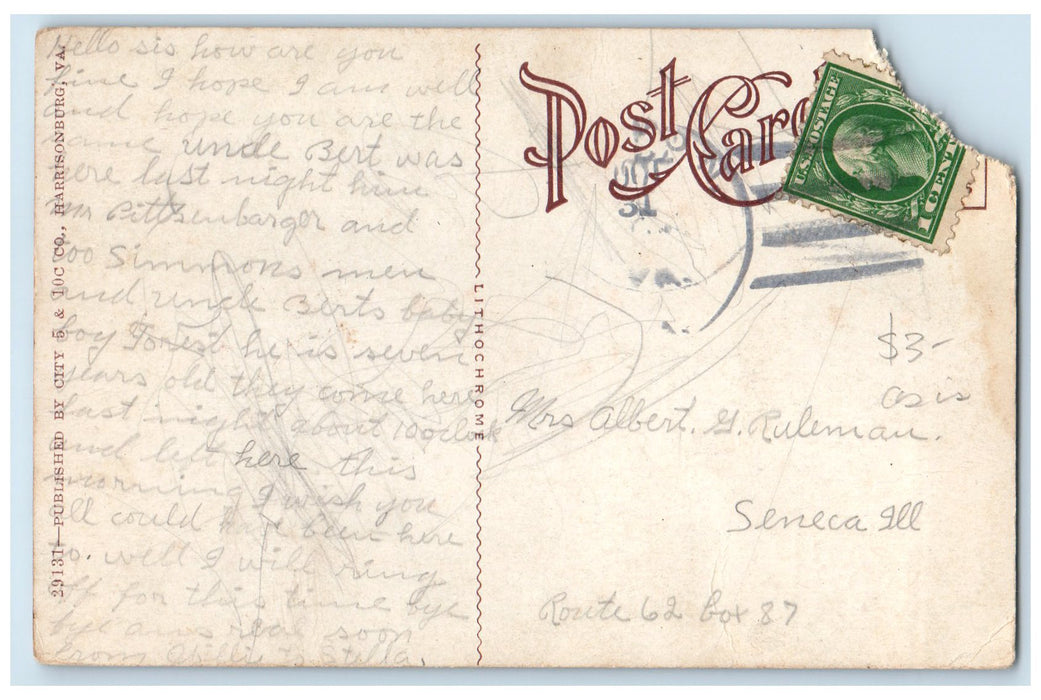 Hello sis how are you
fine I hope I am well
and hope you are the
same uncle Bert was
here last night him
Mr Pittsenbarger and
too Simmons men
and uncle Berts baby
boy Forest he is seven
years old they come here
last night about 10 oclock
and left here this
morning I wish you
all could have been here
to. well I will ring
off for this time bye
bye ans real soon
from Willie to Stella.
29131—PUBLISHED BY CITY 5 & 10C CO., HARRISONBURG, VA.
LITHOCHROME
Post Card
U.S. POSTAGE
1 CENT
31
VA.
$3-
as is
Mrs Albert. G. Ruleman.
Seneca Ill
Route 62 Box 87